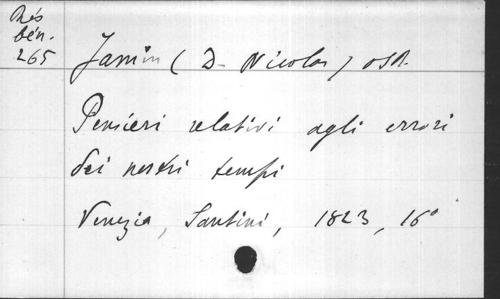 Rés
bén.
265
Jamin (D. Nicolas) OSB.
Pensieri relativi agli errori
dei nostri tempi
Venezia, Santini, 1823, 16°